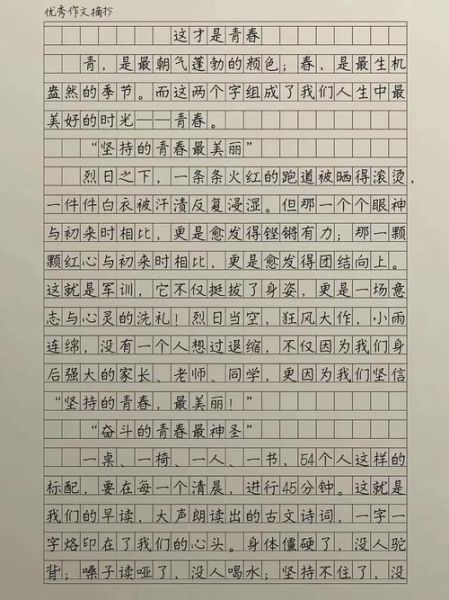 优秀作文摘抄
这才是青春
青，是最朝气蓬勃的颜色；春，是最生机
盎然的季节。而这两个字组成了我们人生中最
美好的时光——青春。
“坚持的青春最美丽”
烈日之下，一条条火红的跑道被晒得滚烫，
一件件白衣被汗渍反复浸湿。但那一个个眼神
与初来时相比，更是愈发得铿锵有力；那一颗
颗红心与初来时相比，更是愈发得团结向上。
这就是军训，它不仅挺拔了身姿，更是一场意
志与心灵的洗礼！烈日当空，狂风大作，小雨
连绵，没有一个人想过退缩，不仅因为我们身
后强大的家长、老师、同学，更因为我们坚信
“坚持的青春，最美丽！”
“奋斗的青春最神圣”
一桌、一椅、一人、一书，54个人这样的
标配，要在每一个清晨，进行45分钟。这就是
我们的早读，大声朗读出的古文诗词，一字一
字烙印在了我们的心头。身体僵硬了，没人驼
背；嗓子读哑了，没人喝水；坚持不住了，没